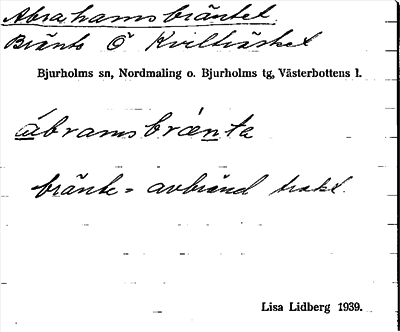 Abrahamsbräntet
Bränts Ö Kvillträsket
Bjurholms sn, Nordmaling o. Bjurholms tg, Västerbottens l.
ábramsbrænta
bränte = avbränd trakt.
Lisa Lidberg 1939.